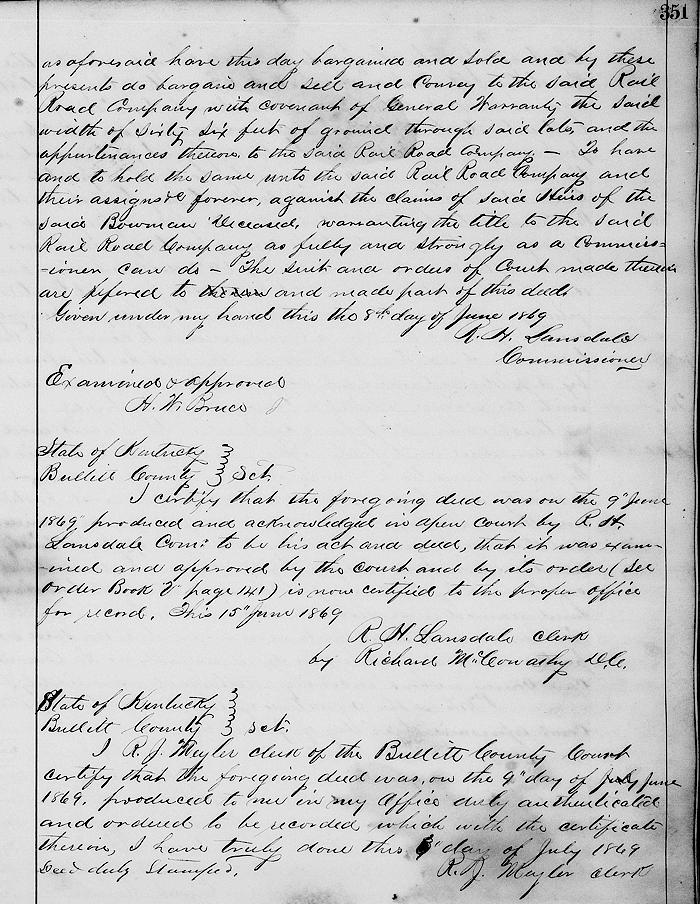 351
as aforesaid have this day bargained and sold and by these
presents do bargain and sell and Convey to the said Rail
Road Company with covenant of General Warranty the said
width of Sixty Six feet of ground through said lots, and the
appurtenances thereon, to the said Rail Road Company — To have
and to hold the same unto the said Rail Road Company and
their assigns forever, aganist the claims of said Heirs of the
said Bowman Deceased, warranting the title to the said
Rail Road Company as fully and strongly as a Commiss-
-ioner can do — The suit and orders of Court made therein
are refered to and made part of this deed.
Given under my hand this the 8th day of June 1869
R. H. Lansdale
Commissioner
Examined & approved
H. W. Bruce
State of Kentucky
Bullitt County } Sct.
I certify that the foregoing deed was on the 9" June
1869" produced and acknowledged in open court by R. H.
Lansdale Comr. to be his act and deed, that it was exam-
-ined and approved by the court and by its order (see
order Book page 141) is now certified to the proper office
for record. This 15" June 1869
R. H. Lansdale Clerk
by Richard D.C.
State of Kentucky
Bullitt County } sct.
I R. J. Meyler clerk of the Bullitt County Court
certify that the foregoing deed was, on the 9" day of July June
1869, produced to me in my Office duly authenticated
and ordered to be recorded which with the certificate
thereon, I have truly done this day of July 1869
Deed duly Stamped.
R. J. Meyler clerk